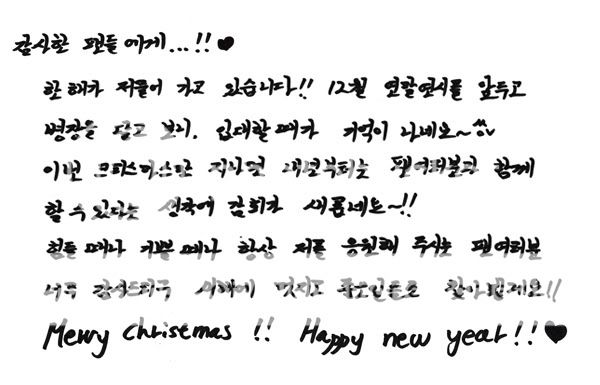 감사한 팬들에게...!!♥
한 해가 저물어 가고 있습니다!! 12월 연말연시를 앞두고
병장을 달고 보니, 입대할 때가 기억이 나네요~^^v
이번 크리스마스만 지나면 내년부터는 팬여러분과 함께
할 수 있다는 생각에 감회가 새롭네요~!!
힘들 때나 기쁠 때나 항상 저를 응원해 주시는 팬여러분
너무 감사드리구 새해에 멋지고 좋은 찾아뵐게요!!
Merry christmas !! Happy new year!!♥